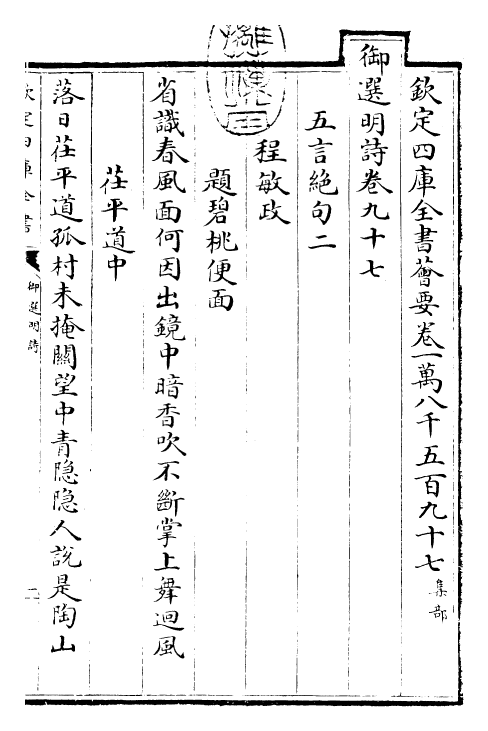 欽定四庫全書薈要卷一萬八千五百九十七 集部
御選明詩卷九十七
五言絶句二
程敏政
題碧桃便面
省識春風面何因出鏡中暗香吹不斷掌上舞迴風
茌平道中
落日茌平道孤村未掩關望中青隐隐人說是陶山
欽定四庫全書
御選明詩